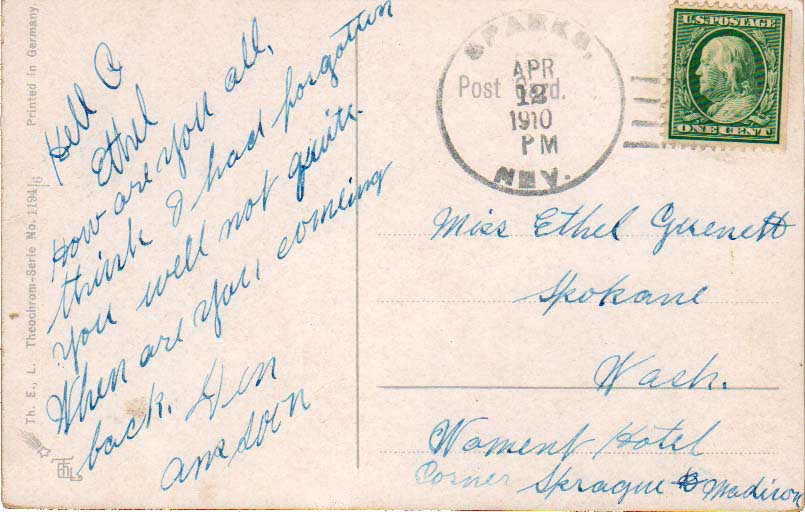 Printed in Germany
Th. E., L. Theochrom-Serie No. 1194/6
Hell O
Ethel
How are you all,
think I had forgotten
you well not quite.
When are you, comeing
back.
ans soon
Post Card.
SPARKS,
APR
12
1910
PM
NEV.
U.S. POSTAGE
ONE CENT
Miss Ethel
Spokane
Wash.
Hotel
Corner Sprague & Madison